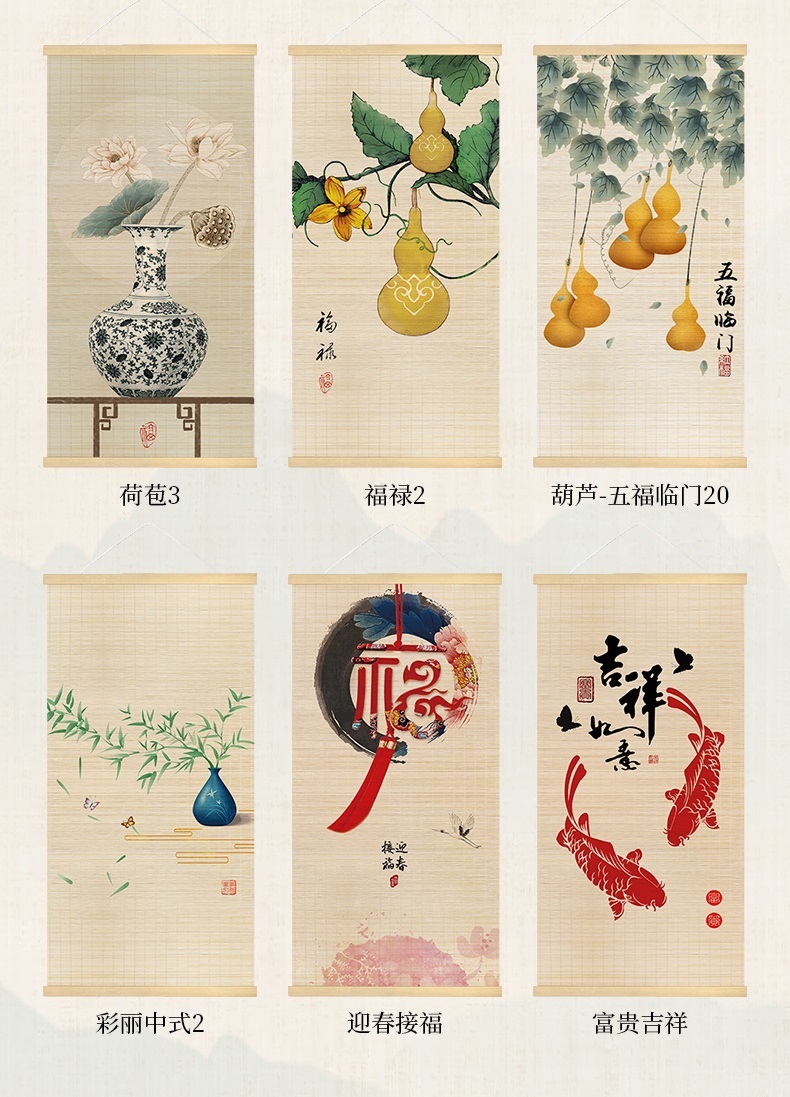 福
禄
五
福
临
门
荷苞3
福禄2
葫芦-五福临门20
福
迎春
接福
吉
祥
如
意
彩丽中式2
迎春接福
富贵吉祥